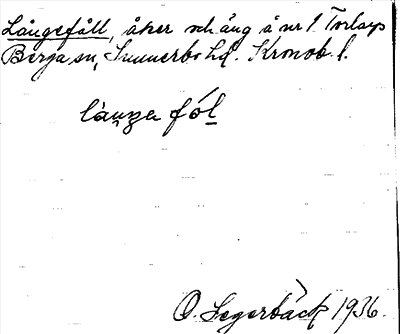 Långefåll, åker och äng å nr 1 Torlarp
Berga sn, Sunnerbo hd. Kronob. l.
låŋga fól
O. Segerbäck 1936.